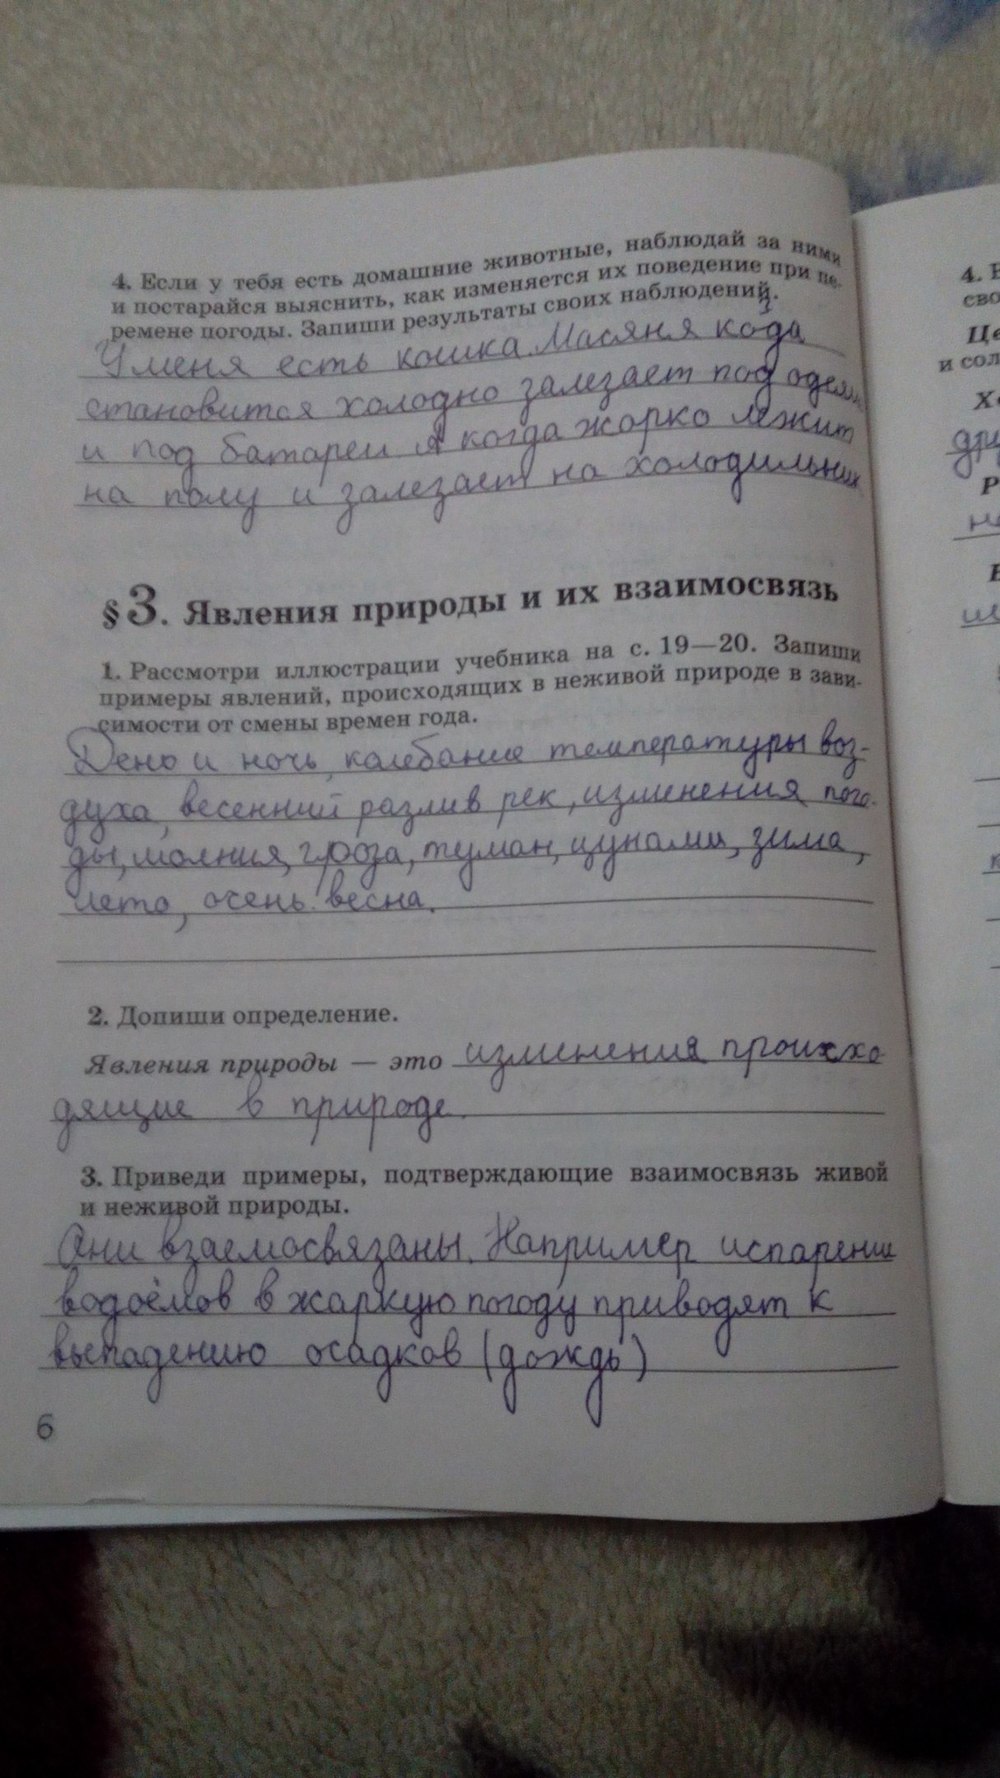 4. Если у тебя есть домашние животные, наблюдай за ними
и постарайся выяснить, как изменяется их поведение при пе-
ремене погоды. Запиши результаты своих наблюдений.
У меня есть кошка Масяня когда
становится холодно залезает под одеял
и под батареи А когда жарко лежит
на полу и залезает на холодильник
§ 3. Явления природы и их взаимосвязь
1. Рассмотри иллюстрации учебника на с. 19—20. Запиши
примеры явлений, происходящих в неживой природе в зави-
симости от смены времен года.
Дено и ночь, колебание температуры воз-
духа, весенний разлив рек, изменения пого-
ды, молния, гроза, туман, цунами, зима,
лето, осень весна.
2. Допиши определение.
Явления природы — это изменения происхо
дящие в природе.
3. Приведи примеры, подтверждающие взаимосвязь живой
и неживой природы.
Они взаемосвязаны. Например испарении
водоёмов в жаркую погоду приводят к
выпадению осадков (дождь)
6
4.
сво
Це
и сол
Х
дру
Р